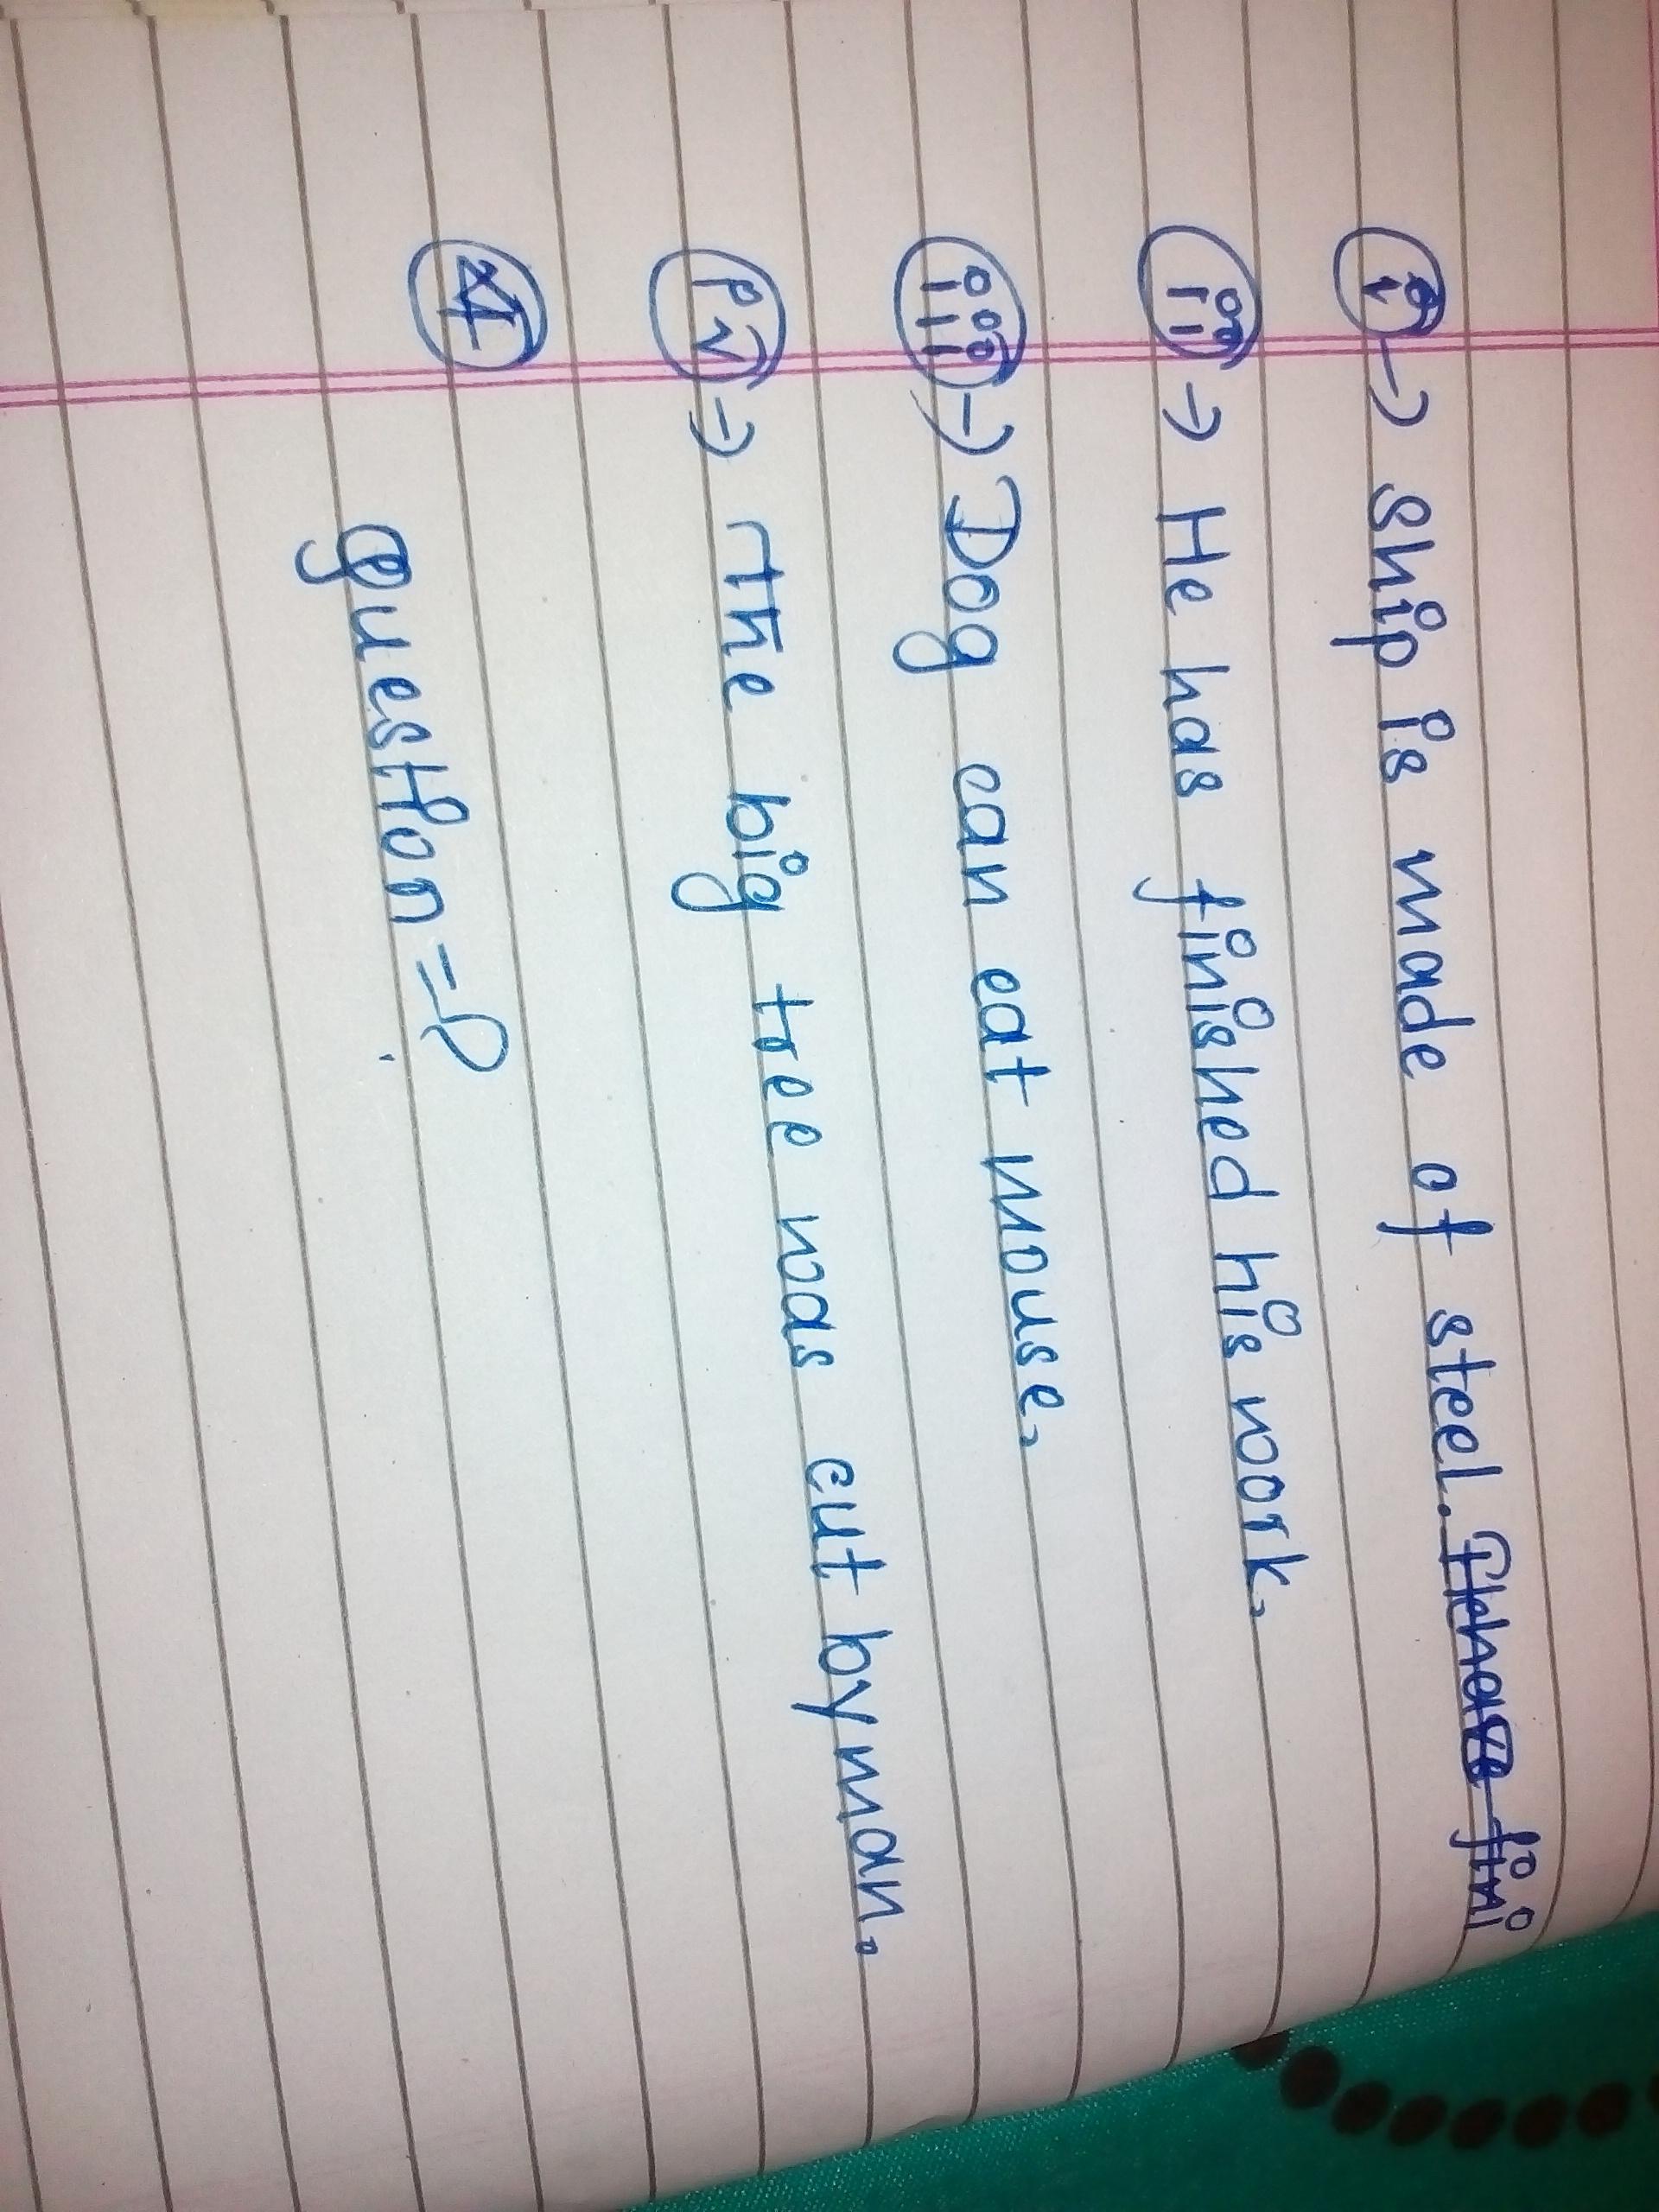 i → Ship is made of steel.
ii → He has finished his work.
iii → Dog can eat mouse.
iv → The big tree was cut by man.
Question =